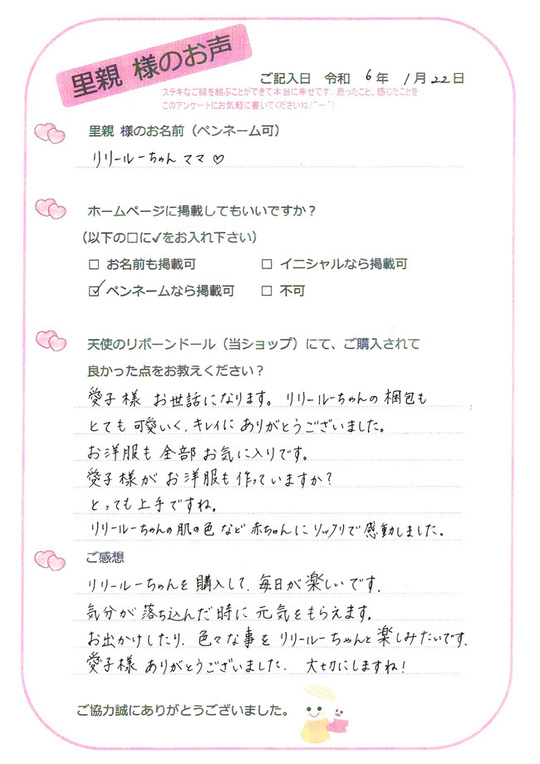 里親 様のお声
ご記入日 令和 6年 1月22日
ステキなご縁を結ぶことができて本当に幸せです。思ったこと、感じたことを
このアンケートにお気軽に書いてくださいね(^ー^)
里親 様のお名前（ペンネーム可）
リリールーちゃん ママ ♡
ホームページに掲載してもいいですか？
（以下の□に✓をお入れ下さい）
□ お名前も掲載可 □ イニシャルなら掲載可
☑ ペンネームなら掲載可 □ 不可
天使のリボーンドール（当ショップ）にて、ご購入されて
良かった点をお教えください？
愛子様 お世話になります。リリールーちゃんの梱包も
とても可愛いく、キレイに ありがとうございました。
お洋服も 全部 お気に入りです。
愛子様が お洋服も作っていますか？
とっても上手ですね。
リリールーちゃんの肌の色など 赤ちゃんにソックリで感動しました。
ご感想
リリールーちゃんを購入して、毎日が楽しいです。
気分が落ち込んだ時に元気をもらえます。
お出かけしたり、色々な事をリリールーちゃんと楽しみたいです。
愛子様 ありがとうございました。 大切にしますね！
ご協力誠にありがとうございました。